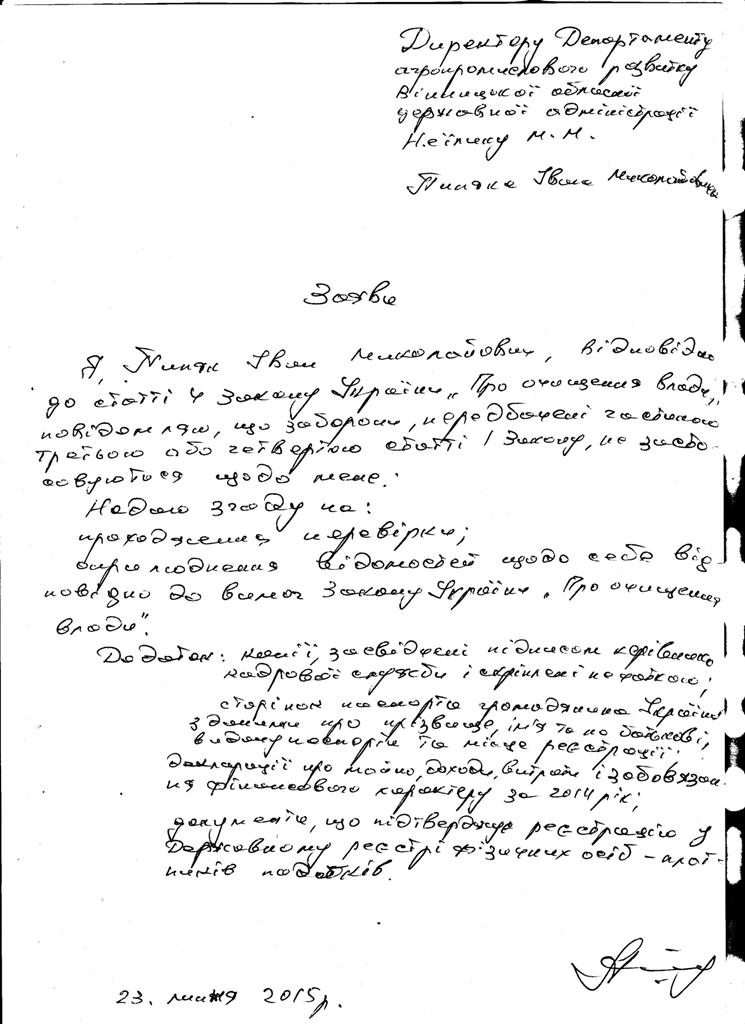 Директору Департаменту
агропромислового розвитку
Вінницької обласної
державної адміністрації
Неїлику М.М.
Пипяка Івана Миколайовича
Заява
Я, Пипяк Іван Миколайович, відповідно
до статті 4 Закону України „Про очищення влади„
повідомляю, що заборони, передбачені частиною
третьою або четвертою статті 1 Закону, не засто-
совуються щодо мене.
Надаю згоду на:
проходження перевірки;
оприлюднення відомостей щодо себе від-
повідно до вимог Закону України „Про очищення
влади".
Додаток: копії, засвідчені підписом керівника
кадрової служби і скріплені печаткою;
сторінок паспорта громадянина України
з даними про прізвище, ім'я та по батькові,
видачу паспорта та місце реєстрації;
декларації про майно, доходи, витрати і зобов'язан-
ня фінансового характеру за 2014 рік;
документа, що підтверджує реєстрацію у
Державному реєстрі фізичних осіб - плат-
ників податків.
23. липня 2015р.